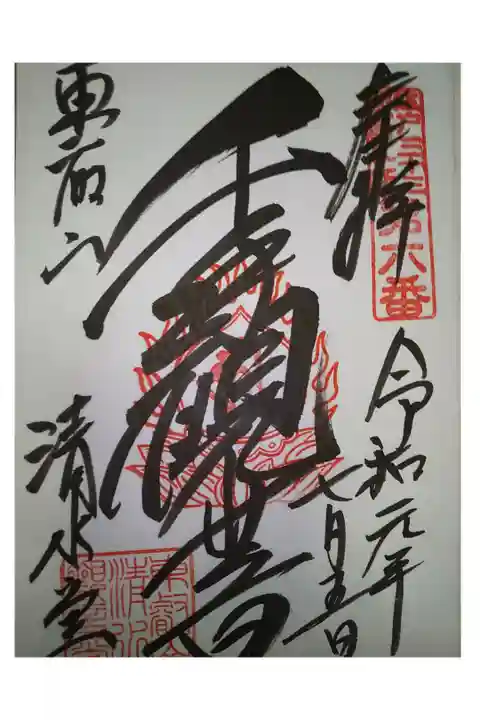 奉拝
六番
令和元年
七月五日
千手観世音
東叡山
清水堂